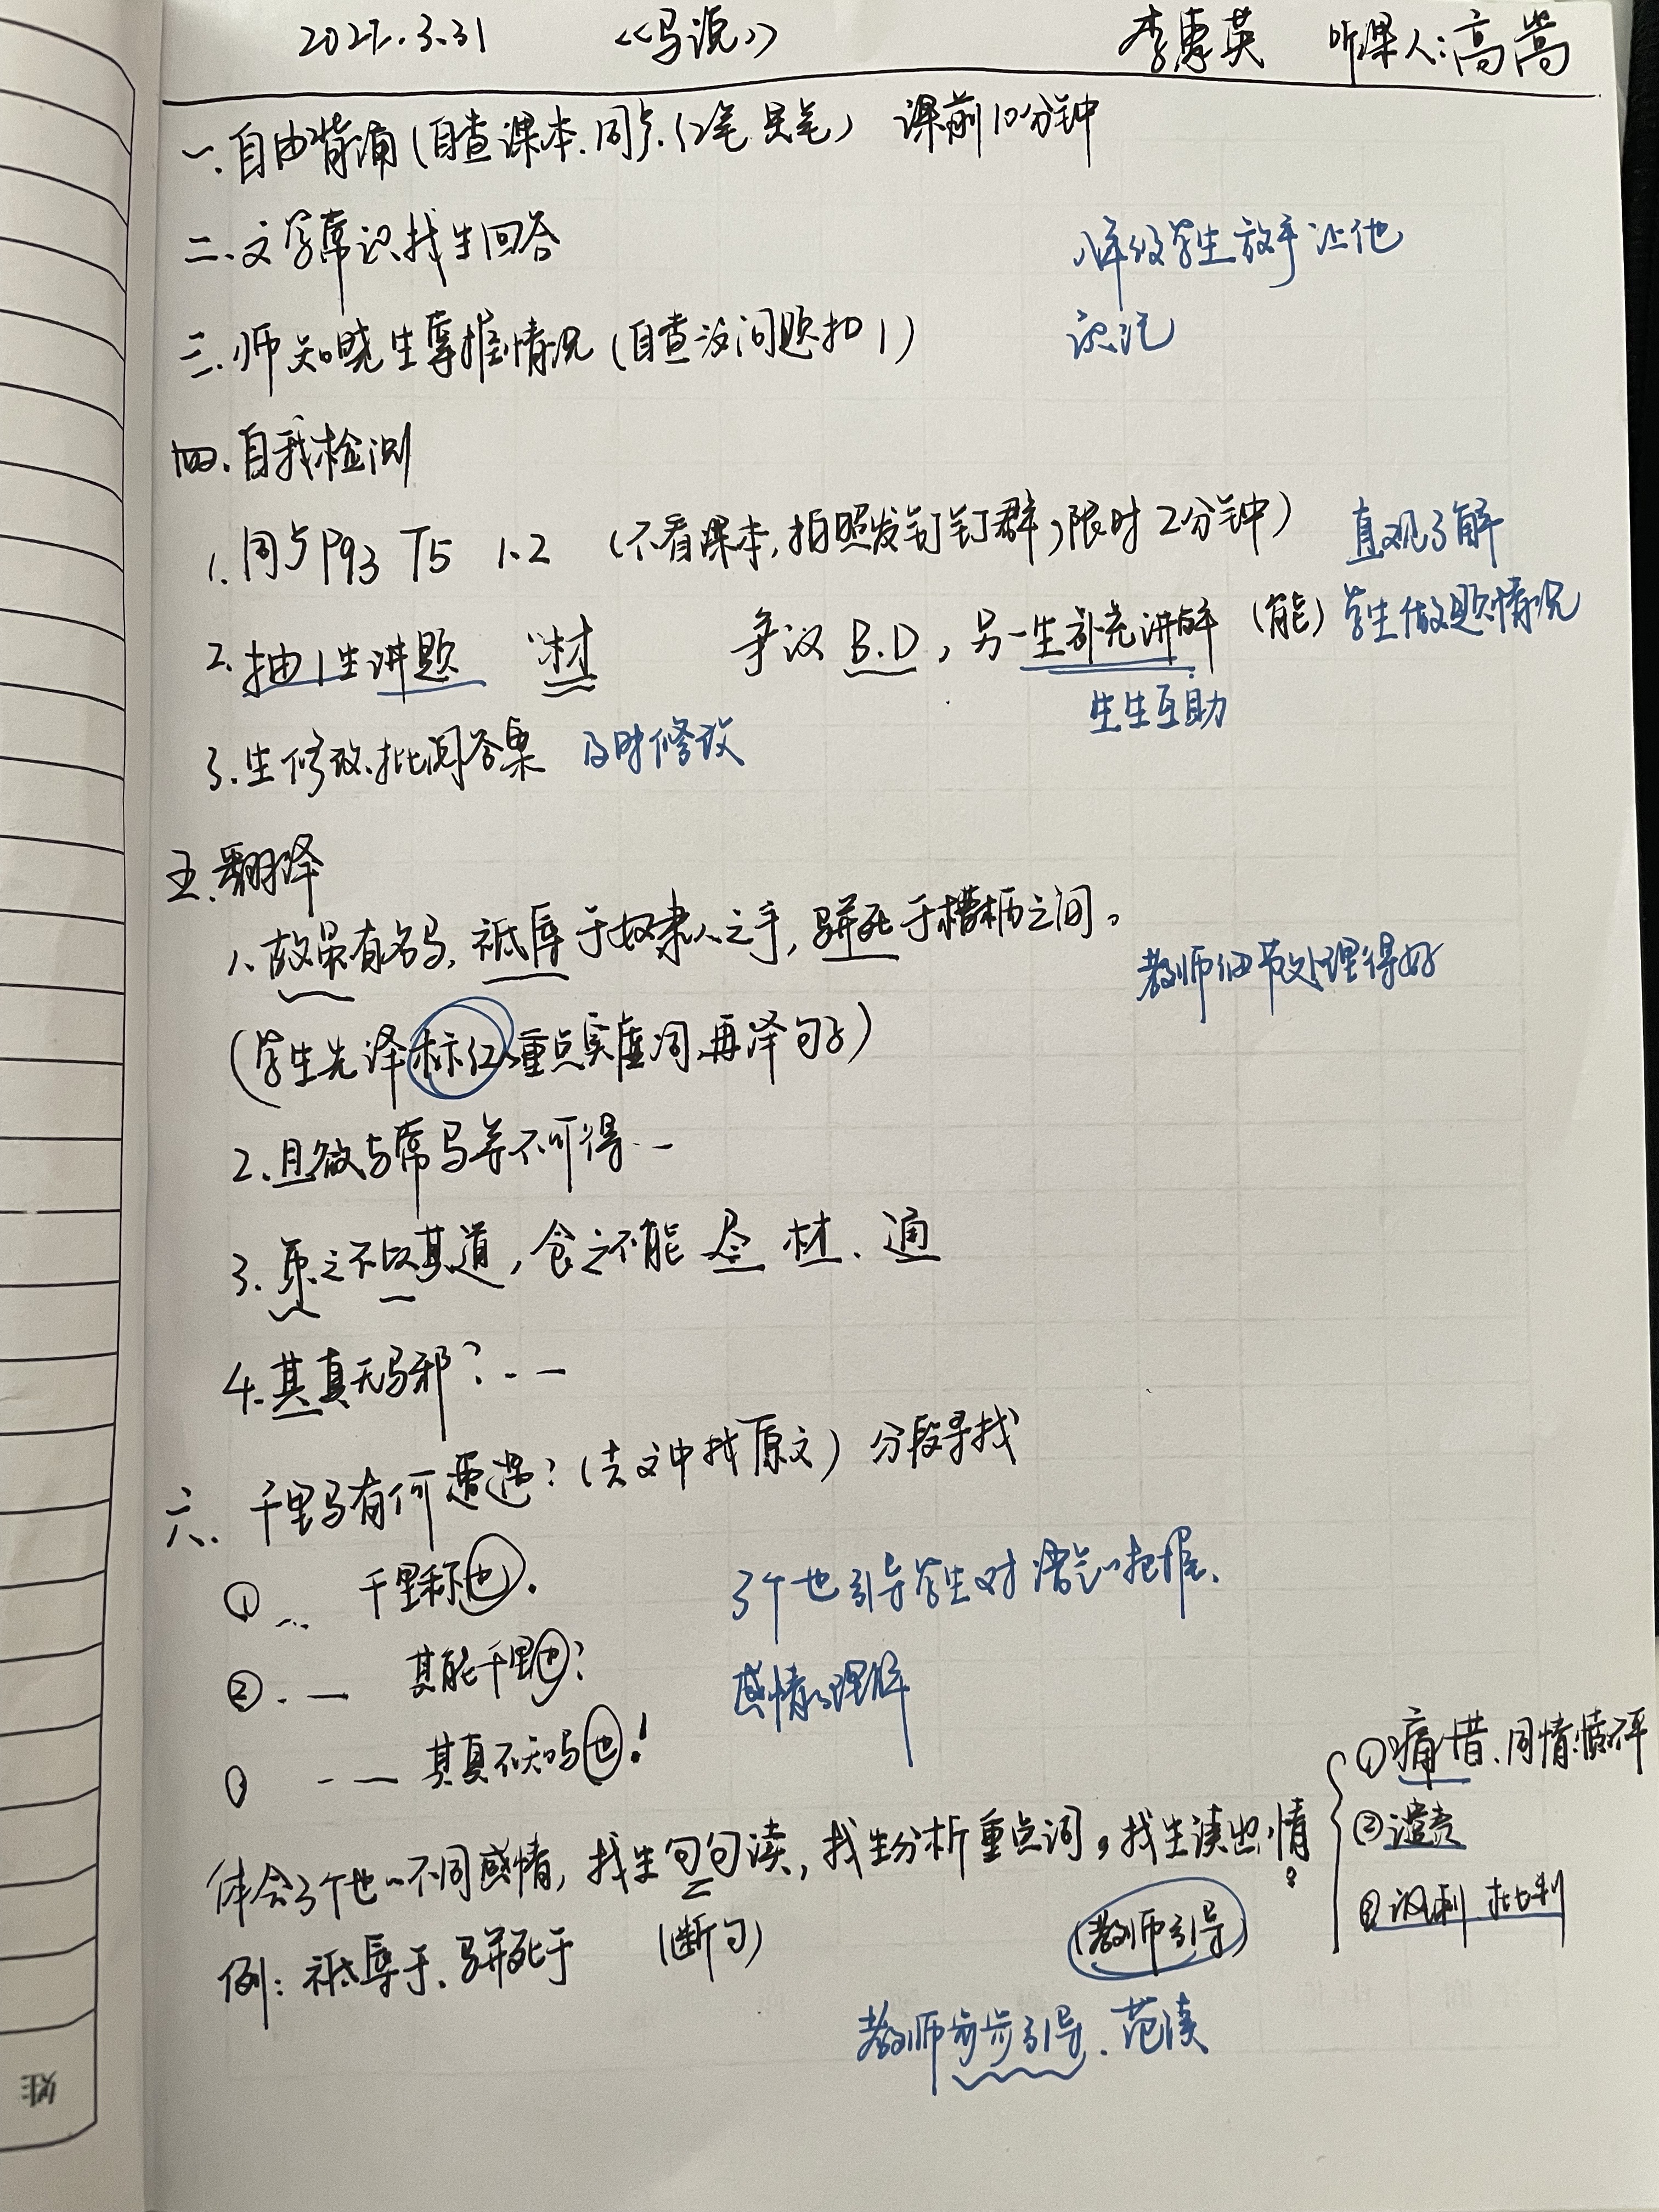 2022.3.31 《马说》 李惠英 听课人:高嵩
一.自由背诵(自查课本.同步.红笔.黑笔) 课前10分钟
二.文学常识找生回答 八年级学生放手让他
三.师知晓生掌握情况(自查没问题扣1) 识记
四.自我检测
1.同步P93 T5 1.2 (不看课本,拍照发钉钉群,限时2分钟) 直观了解
2.抽1生讲题 "材" 争议B.D,另一生补充讲解 (能) 学生做题情况
生生互助
3.生修改.批阅答案 及时修改
五.翻译
1.故虽有名马,祗辱于奴隶人之手,骈死于槽枥之间。
教师细节处理得好
(学生先译标红重点实虚词,再译句子)
2.且欲与常马等不可得...
3.策之不以其道,食之不能 尽 材.通
4.其真无马邪?...
六.千里马有何遭遇?(去文中找原文)分段寻找
① ... 千里称也. 3个也引导学生对语气把握.
② ... 其能千里也? 感情理解
③ ... 其真不知马也!
①痛惜.同情.愤懑不平
②谴责
③讽刺 批判
体会3个也不同感情,找生句句读,找生分析重点词,找生读出情。
例:祗辱于.骈死于 (断句) (教师引导)
教师步步引导.范读
姓